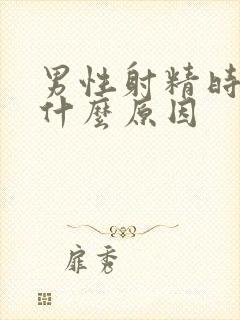 男性射精時
什麼原因
扉秀